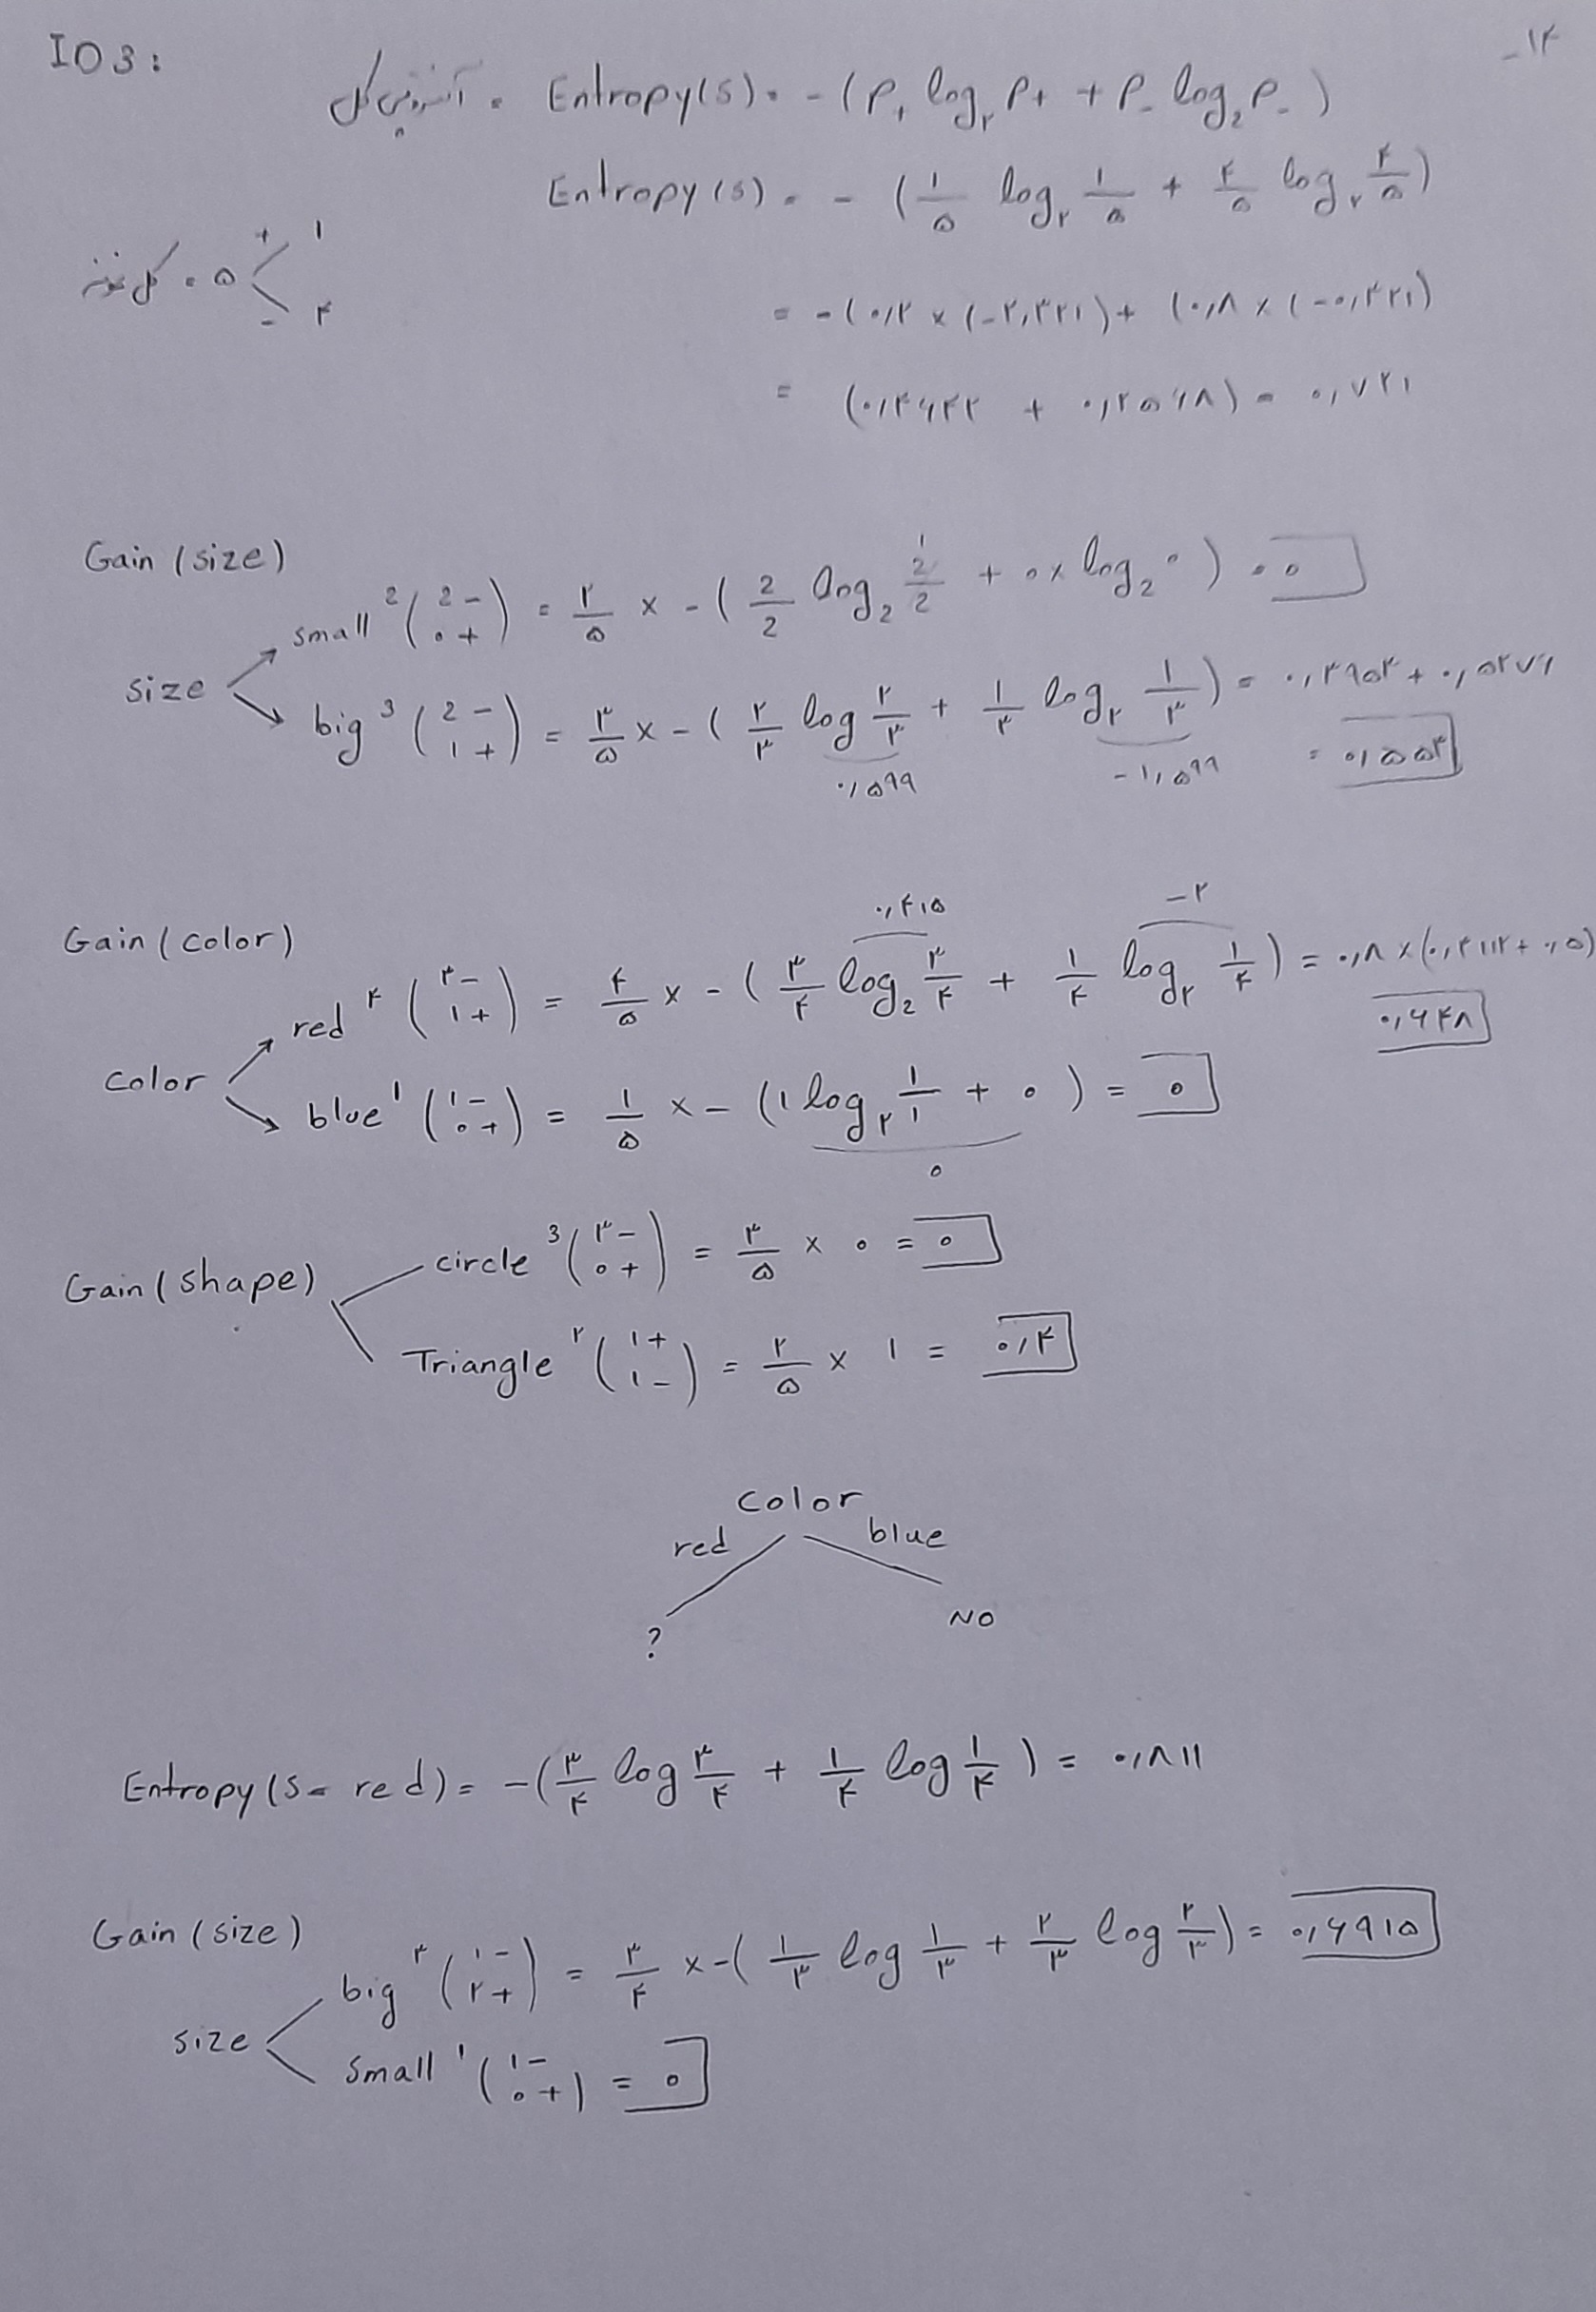 ID3:
-۱۴
آنتروپی کل = Entropy(S) = -(P+ log۲ P+ + P- log2 P-)
Entropy(S) = -(۱/۵ log۲ ۱/۵ + ۴/۵ log۲ ۴/۵)
کل نمونه = ۵ < + ۱ - ۴
= -(۰,۲ × (-۲,۳۲۱) + (۰,۸ × (-۰,۳۲۱)
= (۰,۴۶۴۲ + ۰,۲۵۶۸) = ۰,۷۲۱
Gain (size)
size
small 2 (2- ۰+) = ۲/۵ × -(2/2 log2 2/2 1 + ۰ × log2 ۰) = ۰
big 3 (2- ۱+) = ۳/۵ × -(۲/۳ log ۲/۳ + ۱/۳ log۲ ۱/۳) = ۰,۳۹۵۳ + ۰,۵۲۷۶
۰,۵۹۹ -۱,۵۹۹ = ۰,۵۵۳
Gain (color)
۰,۴۱۵ -۲
color
red ۴ (۳- ۱+) = ۴/۵ × -(۳/۴ log2 ۳/۴ + ۱/۴ log۲ ۱/۴) = ۰,۸ × (۰,۳۱۱۲ + ۰,۵)
۰,۶۴۸
blue ۱ (۱- ۰+) = ۱/۵ × -(۱ log۲ ۱/۱ + ۰) = ۰
۰
Gain (shape)
circle 3 (۳- ۰+) = ۳/۵ × ۰ = ۰
Triangle ۲ (۱+ ۱-) = ۲/۵ × ۱ = ۰,۴
color
red blue
? NO
Entropy (S = red) = -(۳/۴ log ۳/۴ + ۱/۴ log ۱/۴) = ۰,۸۱۱
Gain (size)
size
big ۳ (۱- ۲+) = ۳/۴ × -(۱/۳ log ۱/۳ + ۲/۳ log ۲/۳) = ۰,۶۹۱۵
small ۱ (۱- ۰+) = ۰